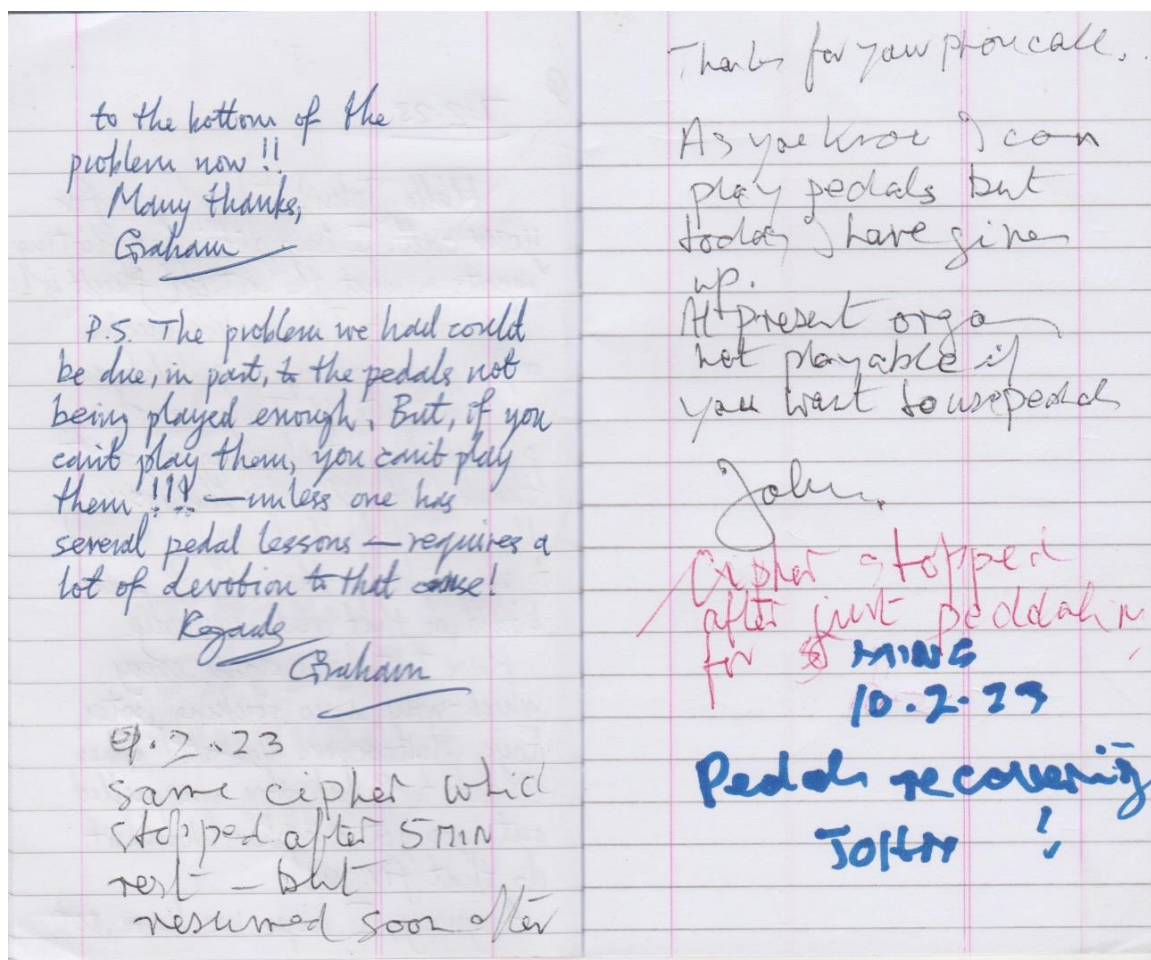 to the bottom of the
problem now !!
Many thanks,
Graham
P.S. The problem we had could
be due, in part, to the pedals not
being played enough. But, if you
can't play them, you can't play
them !!! — unless one has
several pedal lessons — requires a
lot of devotion to that cause!
Regards
Graham
9.2.23
same cipher whic
stopped after 5 MIN
rest - but
resumed soon after
Thanks for your phone call.
As you know I can
play pedals but
today I have given
up.
At present organ
not playable if
you want to use pedals
John.
Cipher stopped
after just peddalin
for 5 MINS
10.2.23
Pedals recovering
JOHN !